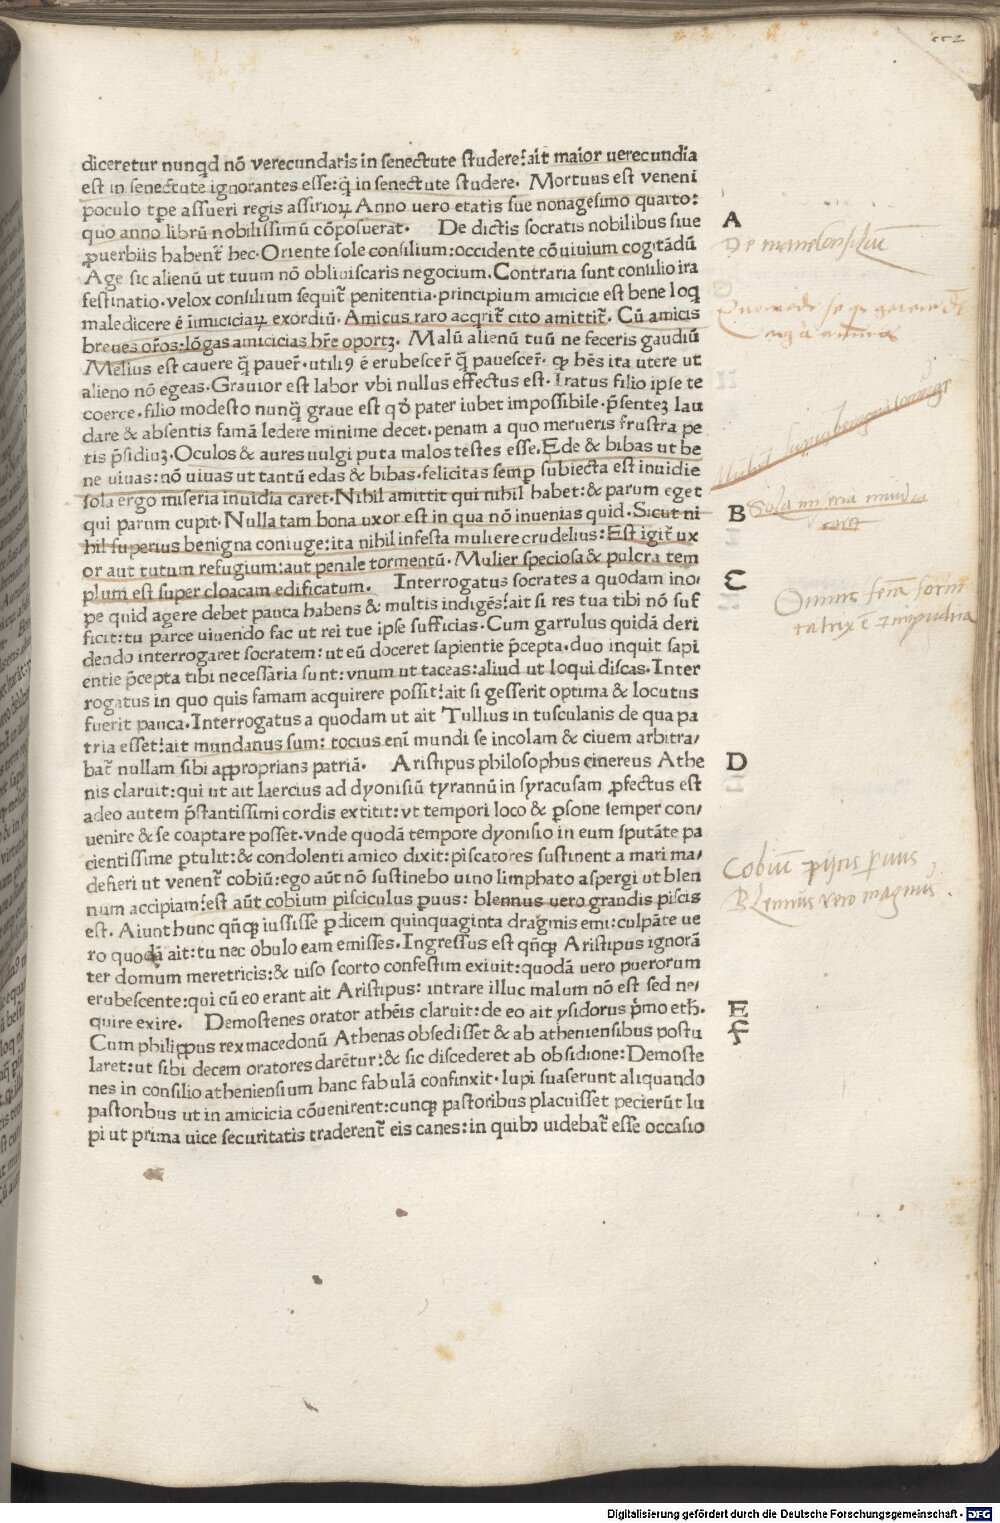 diceretur nunqd nō verecundaris in senectute studere: ait maior uerecundia
est in senectute ignorantes esse: q̄ in senectute studere. Mortuus est veneni
poculo tp̄e assueri regis assirioꝝ Anno uero etatis sue nonagesimo quarto:
quo anno librū nobilissimū cōposuerat. De dictis socratis nobilibus siue
ꝓuerbiis habent̄ hec. Oriente sole consilium: occidente cōuiuium cogitādū
Age sic alienū ut tuum nō obliuiscaris negocium. Contraria sunt consilio ira
festinatio. velox consilium sequit̄ penitentia. principium amicicie est bene loq
maledicere ē īimiciciaꝝ exordiū. Amicus raro acqrit̄ cito amittit̄. Cū amicis
breues or̄os: lōgas amicicias hr̄e oportꝫ. Malū alienū tuū ne feceris gaudiū
Melius est cauere q̄ pauer̄. utiliꝰ ē erubescer̄ q̄ pauescer̄. ꝙ hēs ita utere ut
alieno nō egeas. Grauior est labor vbi nullus effectus est. Iratus filio ipse te
coerce. filio modesto nunq̄ graue est qđ pater iubet impossibile. p̄senteꝫ lau
dare & absentis famā ledere minime decet. penam a quo merueris frustra pe
tis p̄sidiuꝫ. Oculos & aures uulgi puta malos testes esse. Ede & bibas ut be
ne uiuas: nō uiuas ut tantū edas & bibas. felicitas semꝑ subiecta est inuidie
sola ergo miseria inuidia caret. Nihil amittit qui nihil habet: & parum eget
qui parum cupit. Nulla tam bona uxor est in qua nō inuenias quid. Sicut ni
hil superius benigna coniuge: ita nihil infesta muliere crudelius: Est igit̄ ux
or aut tutum refugium: aut penale tormentū. Mulier speciosa & pulcra tem
plum est super cloacam edificatum. Interrogatus socrates a quodam ino/
pe quid agere debet pauca habens & multis indigēs: ait si res tua tibi nō suf
ficit: tu parce uiuendo fac ut rei tue ipse sufficias. Cum garrulus quidā deri
dendo interrogaret socratem: ut eū doceret sapientie p̄cepta. duo inquit sapi
entie p̄cepta tibi necessaria sunt: vnum ut taceas: aliud ut loqui discas. Inter
rogatus in quo quis famam acquirere possit: ait si gesserit optima & locutus
fuerit pauca. Interrogatus a quodam ut ait Tullius in tusculanis de qua pa
tria esset: ait mundanus sum: tocius eni mundi se incolam & ciuem arbitra/
bat̄ nullam sibi approprianꝫ patriā. Aristipus philosophus cinereus Athe
nis claruit: qui ut ait laercius ad dyonisiū tyrannū in syracusam ꝓfectus est
adeo autem p̄stantissimi cordis extitit: vt tempori loco & ꝑsone semper con/
uenire & se coaptare posset. vnde quodā tempore dyonisio in eum sputāte pa
cientissime ꝑtulit: & condolenti amico dixit: piscatores sustinent a mari ma/
defieri ut venent̄ cobiū: ego aūt nō sustinebo uino limphato aspergi ut blen
num accipiam: est aūt cobium pisciculus ꝑuus: blennus uero grandis piscis
est. Aiunt hunc qn̄qꝫ iussisse ꝑdicem quinquaginta dragmis emi: culpāte ue
ro quodā ait: tu nec obulo eam emisses. Ingressus est qn̄qꝫ Aristipus ignorā
ter domum meretricis: & uiso scorto confestim exiuit: quodā uero puerorum
erubescente: qui cū eo erant ait Aristipus: intrare illuc malum nō est sed ne/
quire exire. Demostenes orator athēis claruit: de eo ait ysidorus p̄mo eth.
Cum philippus rex macedonū Athenas obsedisset & ab atheniensibus postu
laret: ut sibi decem oratores darētur: & sic discederet ab obsidione: Demoste
nes in consilio atheniensium hanc fabulā confinxit. lupi suaserunt aliquando
pastoribus ut in amicicia cōuenirent: cunqꝫ pastoribus placuisset pecierūt lu
pi ut prima uice securitatis traderent̄ eis canes: in quibꝰ uidebat̄ esse occasio
A
B
Sola miseria inuidia
caret
C
Omnis
D
Cobiū piscis ꝑuus
Blennus vero magnus.
E
F
Digitalisierung gefördert durch die Deutsche Forschungsgemeinschaft - DFG